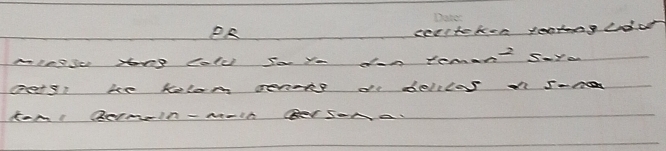 Date:
PR ceritakan tentang liburan
minggu yang lalu saya dan teman² saya
pergi ke kolam renang di delitas di sana
kami bermain-main bersama.